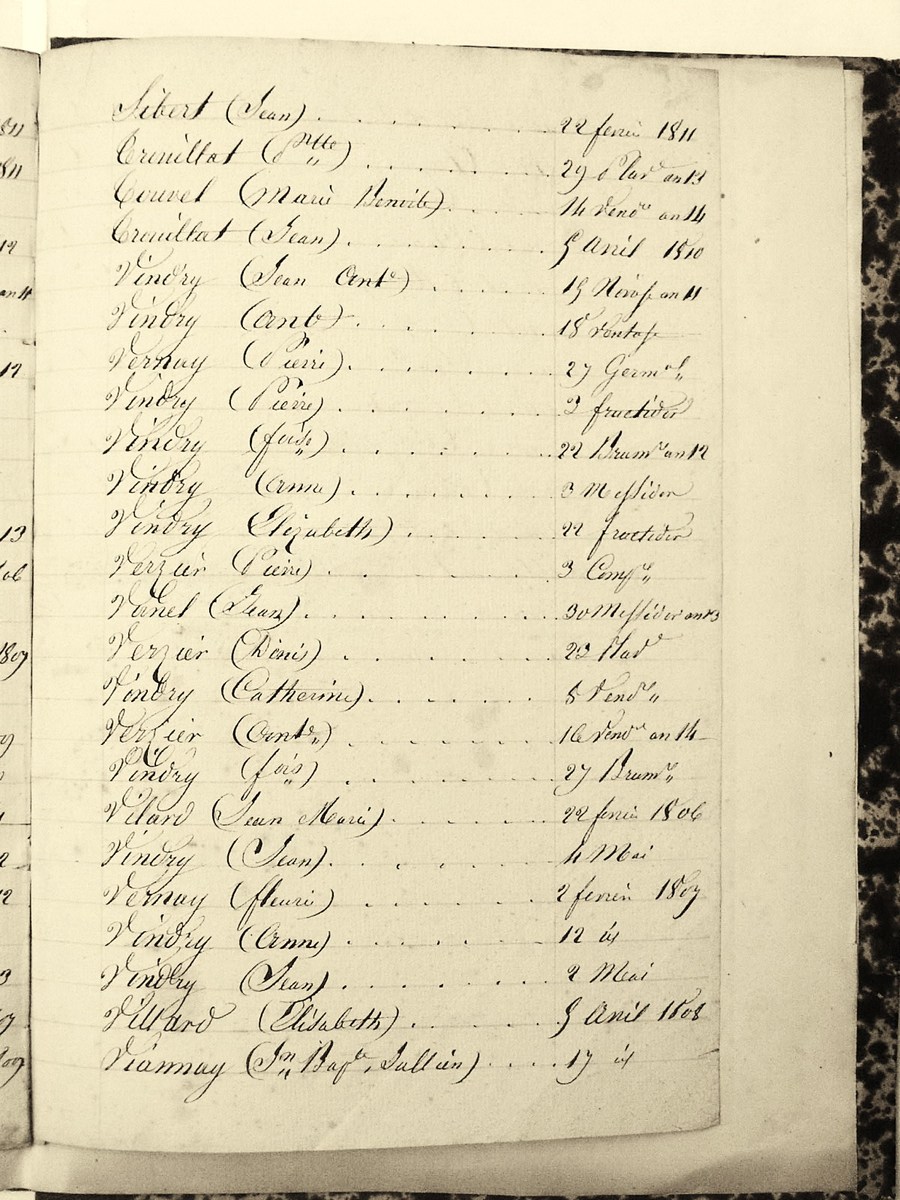 Sibert (Jean) . . . . . . . . 22 fevrier 1811
Crouillat (Ptte) . . . . . . . 29 Pluv an 13
Couvet (Marie Benoite) . . . . 14 Vend.re an 14
Crouillat (Jean) . . . . . . . 9 Avril 1810
Vindry (Jean Ant.e) . . . . . 19 Nivose an 11
Vindry (Ant) . . . . . . . 18 Ventose
Vernay (Pierre) . . . . . . . 27 Germ.al "
Vindry (Pierre) . . . . . . . 3 fructidor
Vindry (fois) . . . . . . . 22 Brum.re an 12
Vindry (Anne) . . . . . . . 3 Messidor
Vindry Elizabeth) . . . . . 22 fructidor
Verzier (Pierre) . . . . . . . 3 Comp.re "
Vanel (Jean) . . . . . . . 30 Messidor an 13
Verzier (Dénis) . . . . . . . 23 Pluv
Vindry (Catherine) . . . . . . 8 Vend.re "
Verzier (Ant.e) . . . . . . . 16 Vend.re an 14
Vindry (fois) . . . . . . . 27 Brum.re "
Vilard (Jean Marie) . . . . . 22 fevrier 1806
Vindry (Jean) . . . . . . . 4 Mai
Vernay (fleurie) . . . . . . . 2 fevrier 1807
Vindry (Anne) . . . . . . . 12 id
Vindry (Jean) . . . . . . . 2 Mai
Villard (Elisabeth) . . . . . . 9 Avril 1808
Viannay (Jn Bapt.e, Jullien) . . . . 17 id